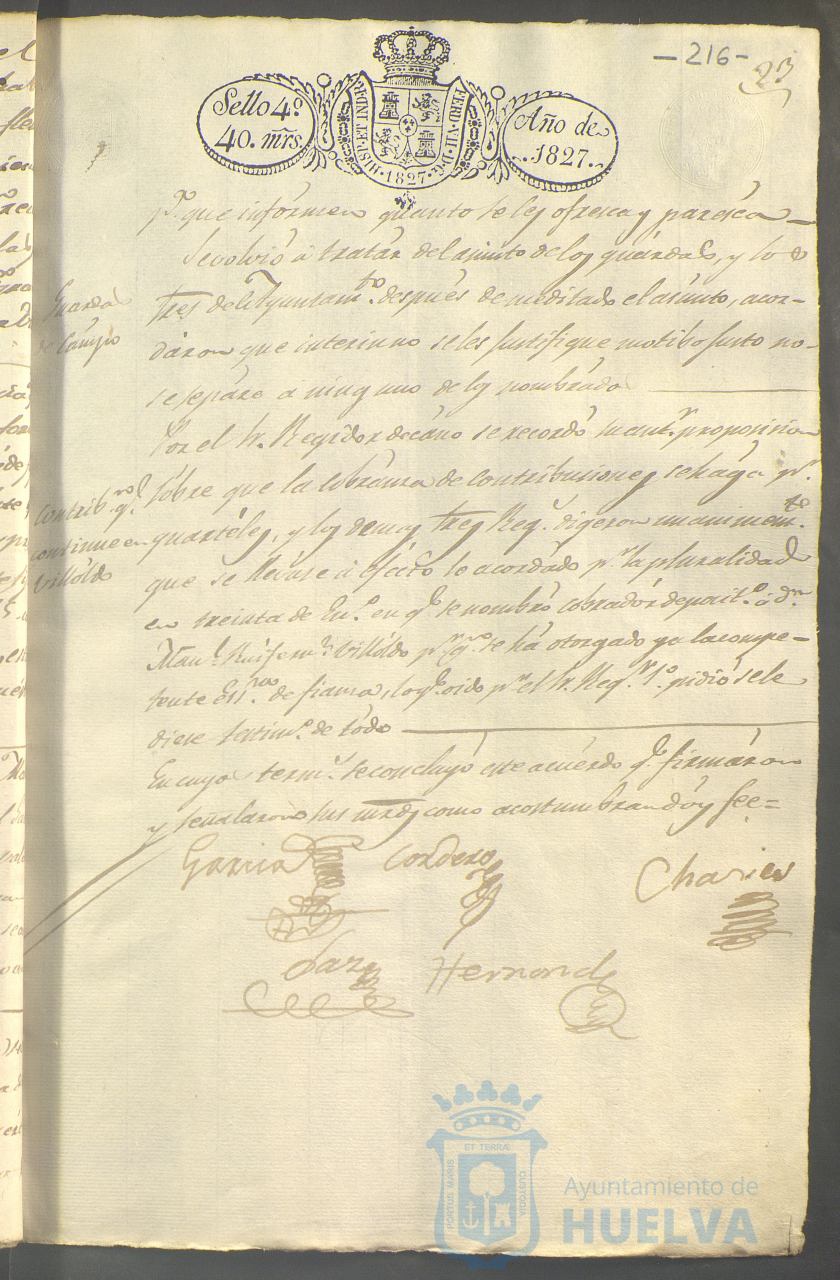 -216-
23
Sello 4º
40. mrs.
HISP. ET IND. R.
FERD. VII. D. G.
1827
Año de
1827.
pª. que informen quanto se les ofresca y paresca
Guardas
de Campo
Se volvió á tratar del asunto de los guardas, y los
tres del Ayuntamto. despues de meditado el asunto, acor-
daron que interin no se les justifique motibo justo no
se sepáre á ninguno de los nombrados
Por el Sr. Regidor decáno se recordó su antr. proposicion
Contribn. qe.
continue en
Villóldo
sobre que la cobranza de contribuciones se hága pr.
quartéles, y los demas tres Regs. digeron unanimemte.
que se lleváse á efécto lo acordado pr. la pluralidad
en treinta de En. en qe. se nombró cobradór depositº. á dn.
Manl. Villóldo pr. qn. se há otorgado ya la compe-
tente Essra. de fianza, lo qe. oido pr. el Sr. Regr. 1º. pidió se le
diese testimº. de todo
En cuyos termos. se concluyó este acuérdo qe. firmáron
y señalaron sus mrds. como acostumbran doy feé=
Garcia Cordero
Charies
Paz Hernandz
ET TERRÆ
PORTUS MARIS
CUSTODIA
Ayuntamiento de
HUELVA